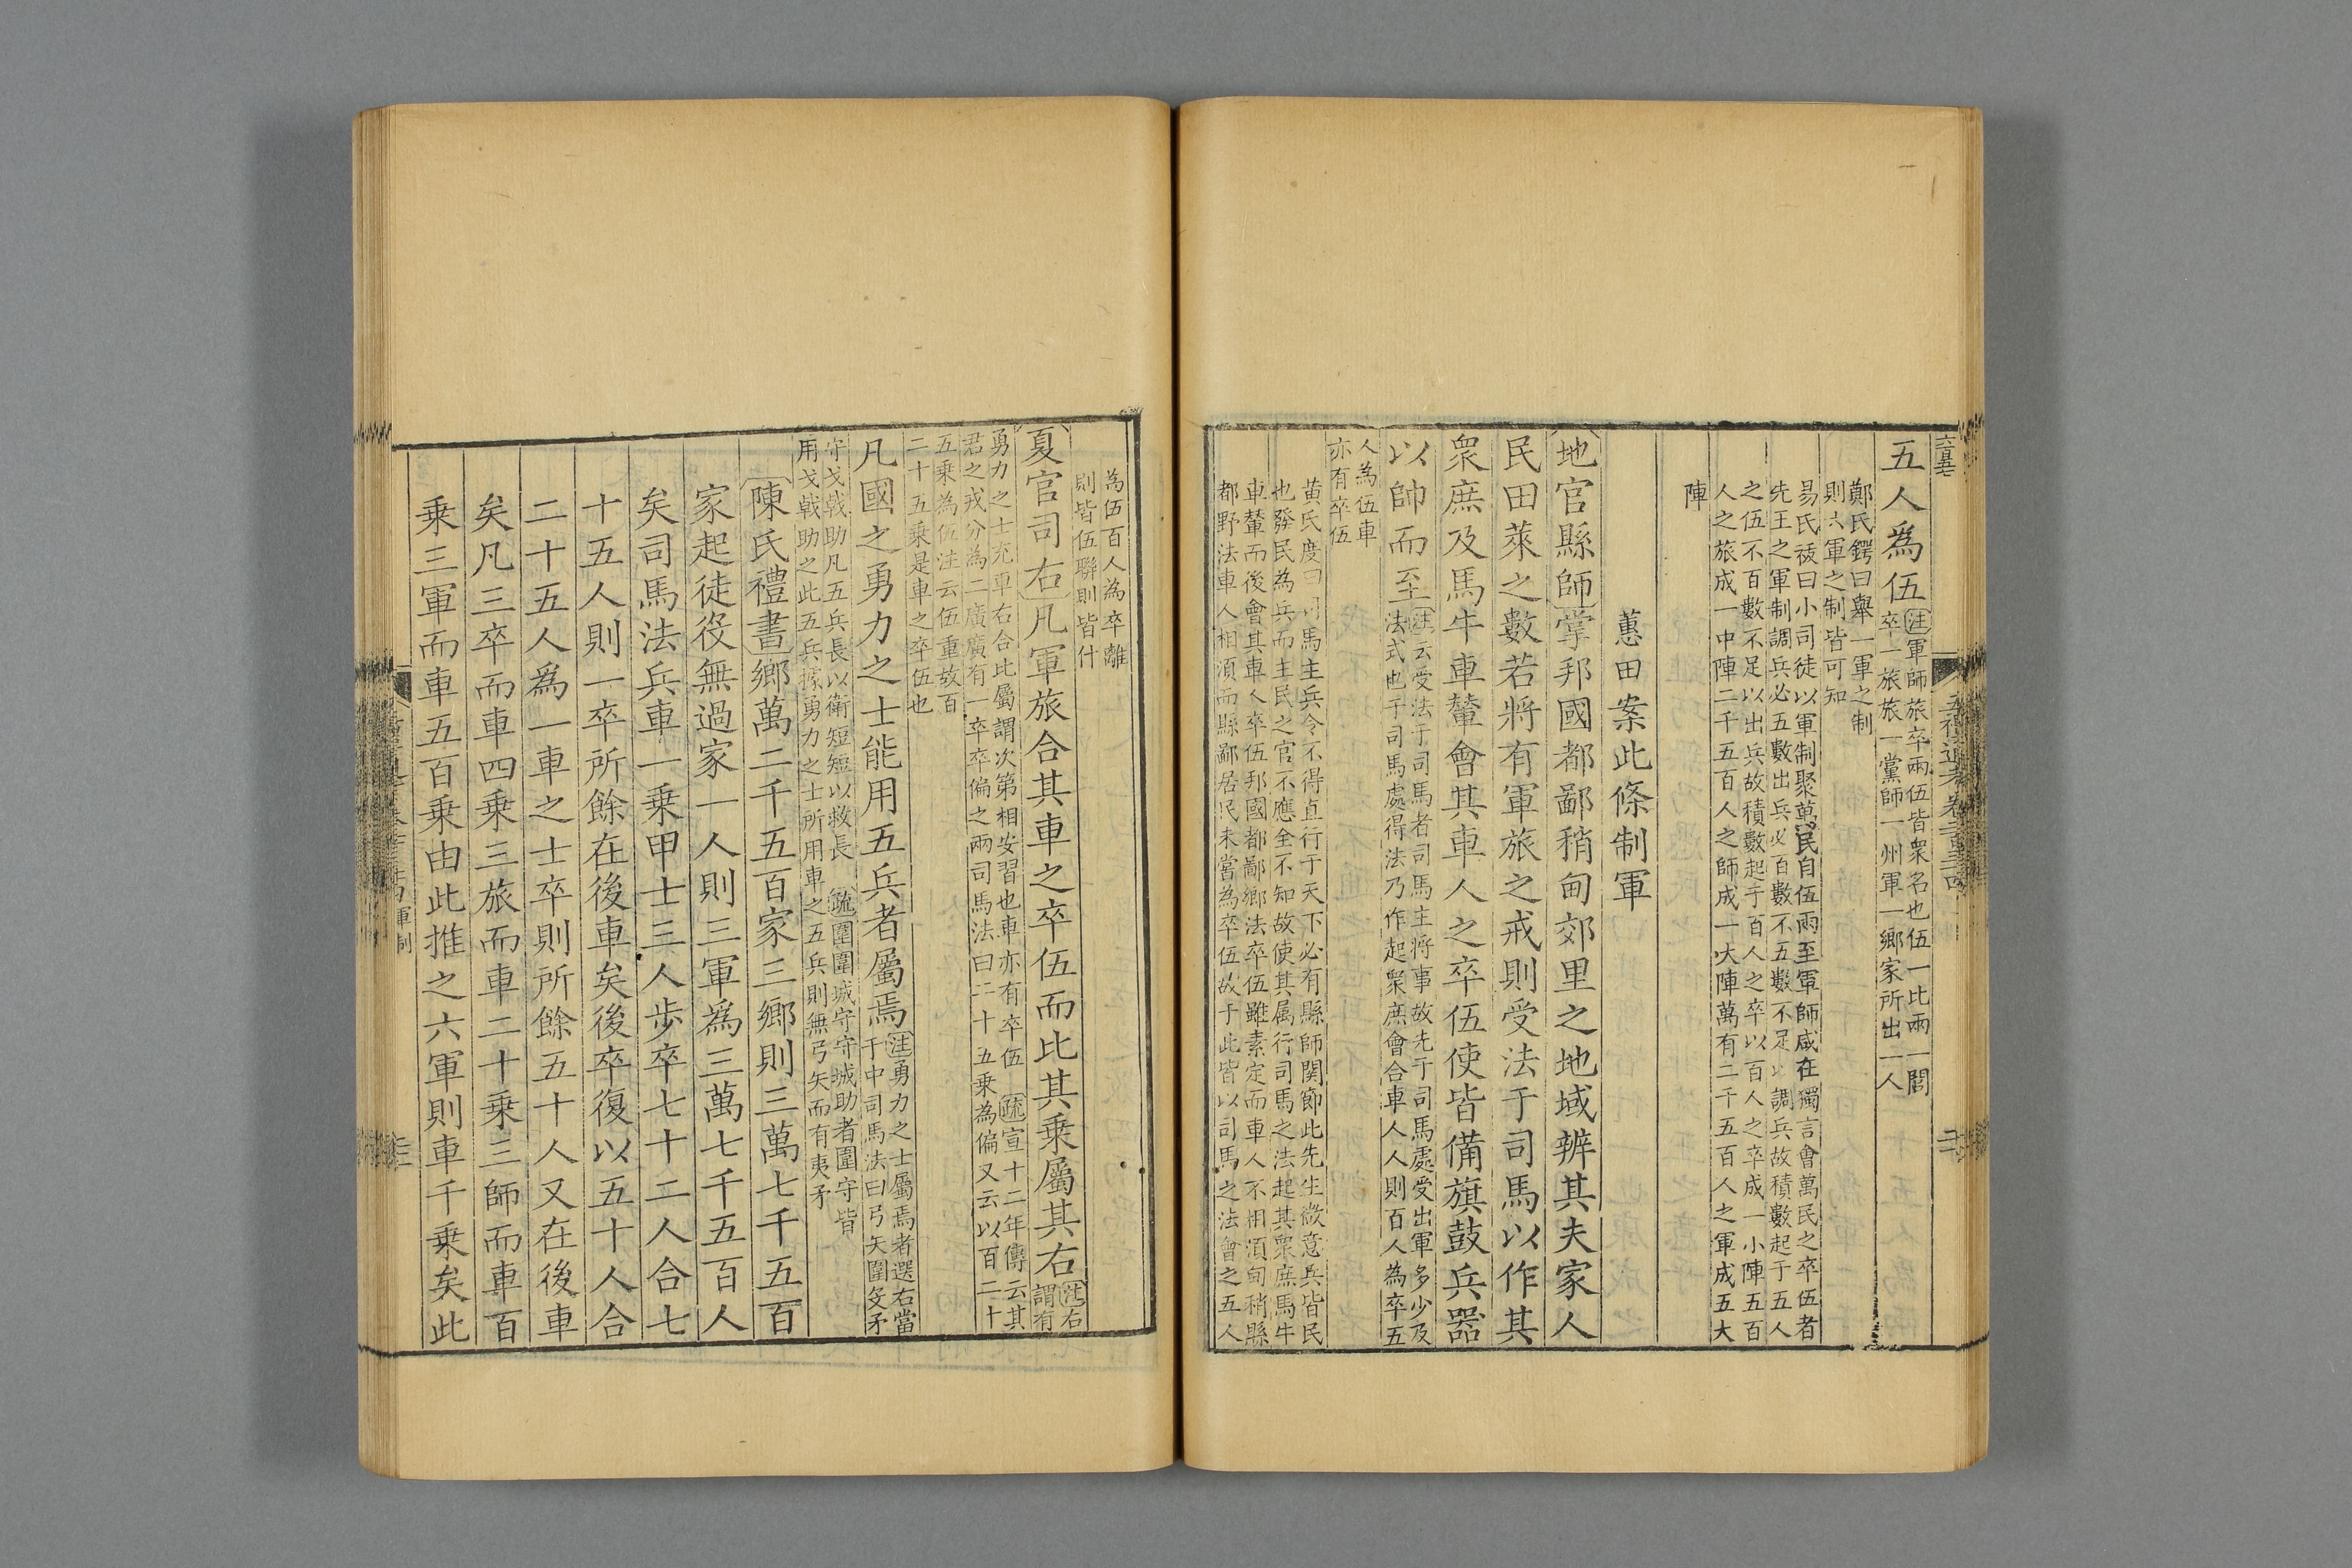 五人爲伍注軍師旅卒兩伍皆衆名也伍一比兩一閭
卒一旅旅一黨師一州軍一鄉家所出一人
鄭氏鍔曰舉一軍之制
則六軍之制皆可知
易氏祓曰小司徒以軍制聚萬民自伍兩至軍師咸在獨言會萬民之卒伍者
先王之軍制調兵必五數出兵必百數不五數不足以調兵故積數起于五人
之伍不百數不足以出兵故積數起于百人之卒以百人之卒成一小陣五百
人之旅成一中陣二千五百人之師成一大陣萬有二千五百人之軍成五大
陣
蕙田案此條制軍
地官縣師掌邦國都鄙稍甸郊里之地域辨其夫家人
民田萊之數若將有軍旅之戒則受法于司馬以作其
衆庶及馬牛車輦會其車人之卒伍使皆備旗鼓兵器
以帥而至注云受法于司馬者司馬主將事故先于司馬處受出軍多少及
法式也于司馬處得法乃作起衆庶會合車人人則百人為卒五
人為伍車
亦有卒伍
黄氏度曰司馬主兵令不得直行于天下必有縣師関節此先生微意兵皆民
也發民為兵而主民之官不應全不知故使其属行司馬之法起其衆庶馬牛
車輦而後會其車人卒伍邦國都鄙鄉法卒伍雖素定而車人不相湏甸稍縣
都野法車人相湏而縣鄙居民未當為卒伍故于此皆以司馬之法會之五人
為伍百人為卒離
則皆伍聯則皆什
夏官司右凡軍旅合其車之卒伍而比其乗屬其右注右
謂有
勇力之士充車右合比屬謂次第相安習也車亦有卒伍 疏宣十二年傳云其
君之戎分為二廣廣有一卒卒偏之兩司馬法曰二十五乗為偏又云以百二十
五乗為伍注云伍重故百
二十五乗是車之卒伍也
凡國之勇力之士能用五兵者屬焉注勇力之士屬焉者選右當
于中司馬法曰弓矢圍殳矛
守戈戟助凡五兵長以衛短短以救長 疏圍圍城守守城助者圍守皆
用戈戟助之此五兵據勇力之士所用車之五兵則無弓矢而有夷矛
陳氏禮書鄉萬二千五百家三鄉則三萬七千五百
家起徒役無過家一人則三軍爲三萬七千五百人
矣司馬法兵車一乗甲士三人歩卒七十二人合七
十五人則一卒所餘在後車矣後卒復以五十人合
二十五人爲一車之士卒則所餘五十人又在後車
矣凡三卒而車四乗三旅而車二十乗三師而車百
乗三軍而車五百乗由此推之六軍則車千乗矣此